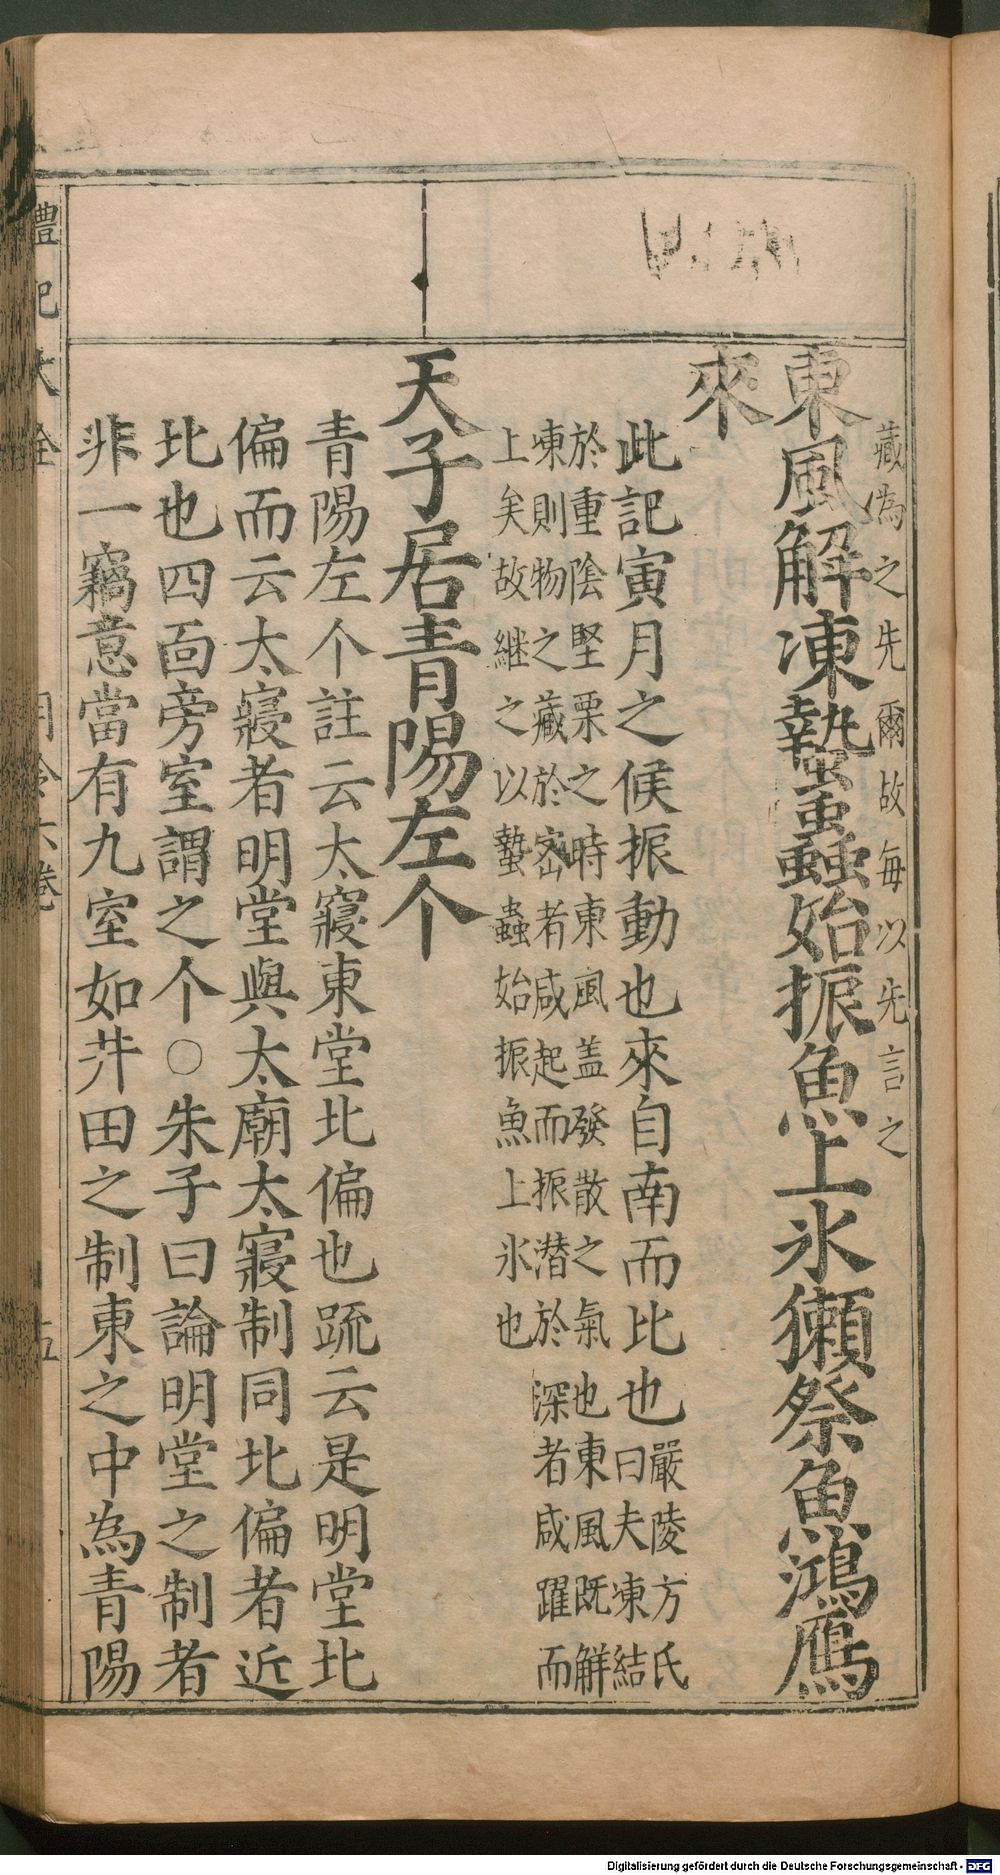 藏為之先爾故每以先言之
東風解凍蟄蟲始振魚上氷獺祭魚鴻鴈
來
此記寅月之候振動也來自南而北也
嚴陵方氏
曰夫凍結
於重陰堅栗之時東風盖發散之氣也東風既解
凍則物之藏於宻者咸起而振潜於深者咸躍而
上矣故継之以蟄蟲始振魚上氷也
天子居青陽左个
青陽左个註云太寢東堂北偏也䟽云是明堂北
偏而云太寢者明堂與太廟太寢制同北偏者近
北也四面旁室謂之个○朱子曰論明堂之制者
非一竊意當有九室如井田之制東之中為青陽
禮記大全
月令六卷
五
Digitalisierung gefördert durch die Deutsche Forschungsgemeinschaft - DFG